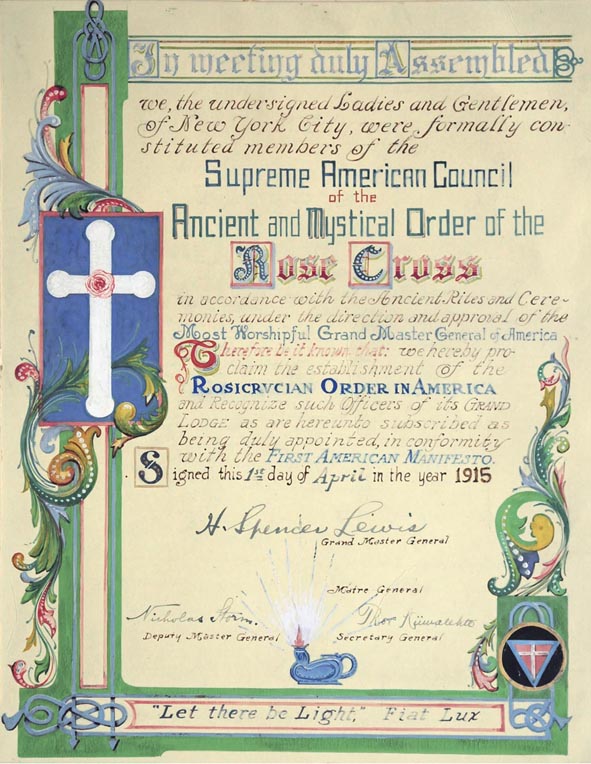 In meeting duly Assembled
we, the undersigned Ladies and Gentlemen,
of New York City, were formally con-
stituted members of the
Supreme American Council
of the
Ancient and Mystical Order of the
Rose Cross
in accordance with the Ancient Rites and Cere-
monies, under the direction and approval of the
Moost Worshipful Grand Master General of America
Therefore be it known that: we hereby pro-
claim the establishment of the
ROSICRVCIAN ORDER IN AMERICA
and Recognize such Officers of its GRAND
LODGE as are hereunto subscribed as
being duly appointed, in conformity
with the FIRST AMERICAN MANIFESTO.
Signed this 1st day of April in the year 1915
H. Spencer Lewis
Grand Master General
Matre General
Nicholas Storm.
Thor
Deputy Master General
Secretary General
"Let there be Light," Fiat Lux